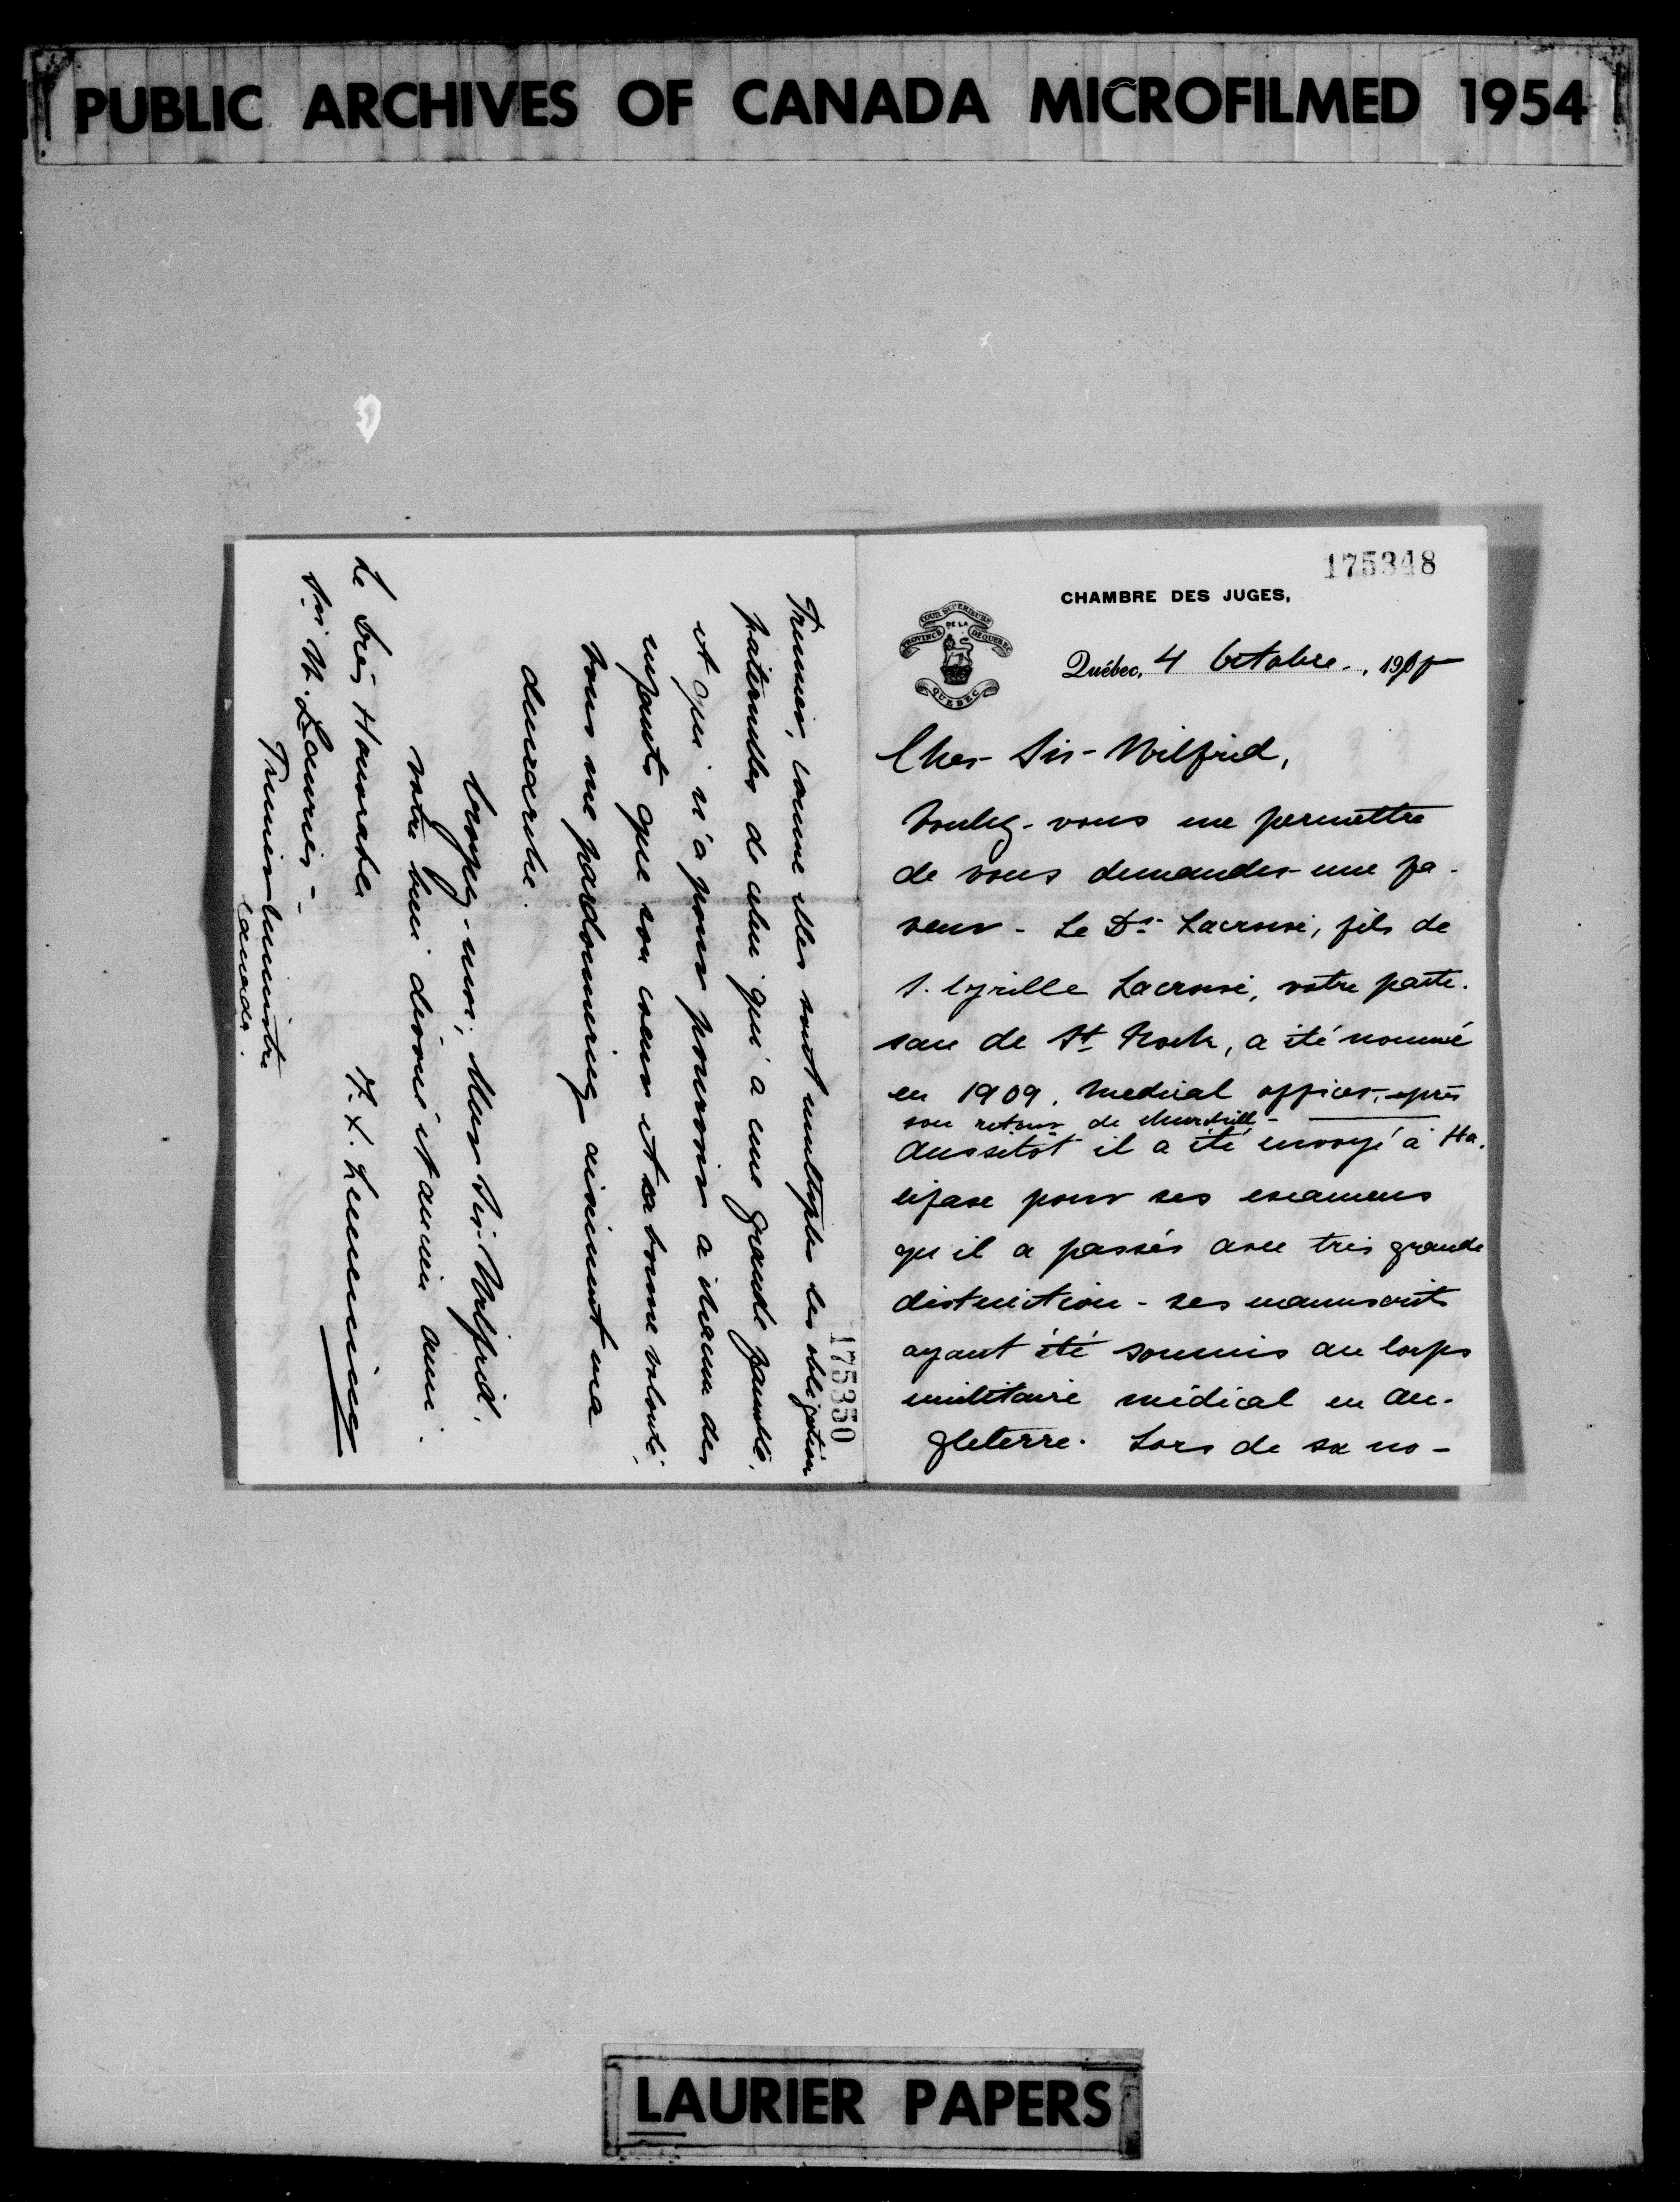 PUBLIC ARCHIVES OF CANADA MICROFILMED 1954
175348
CHAMBRE DES JUGES,
COUR SUPERIEURE
DE LA
PROVINCE DE QUEBEC
QUEBEC
Québec, 4 Octobre. , 19
Cher Sir Wilfrid,
Voulez-vous me permettre
de vous demander une fa-
veur - Le Dr Lacroix, fils de
S. Cyrille Lacroix, votre parti-
san de St Roch, a été nommé
en 1909. Medical officer, après
son retour de Churchill -
Aussitôt il a été envoyé à Ha-
lifax pour ses examens
qu'il a passés avec très grande
distinction - ses manuscrits
ayant été soumis au Corps
militaire médical en An-
gleterre. Lors de sa no-
175350
Premier, comme elles sont multiples les obligations
paternelles de celui qui a une grande famille,
et qui n'a pour pourvoir a chacun des
enfants que son coeur et sa bonne volonté,
vous me pardonnerez aisément ma
démarche.
Croyez-moi, Cher Sir Wilfrid,
votre bien dévoué et ancien ami.
F. X. Lemieux
Le très Honorable
Sir W. Laurier -
Premier Ministre
Canada.
LAURIER PAPERS